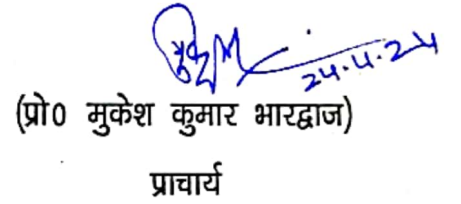 24.4.24
(प्रो0 मुकेश कुमार भारद्वाज)
प्राचार्य